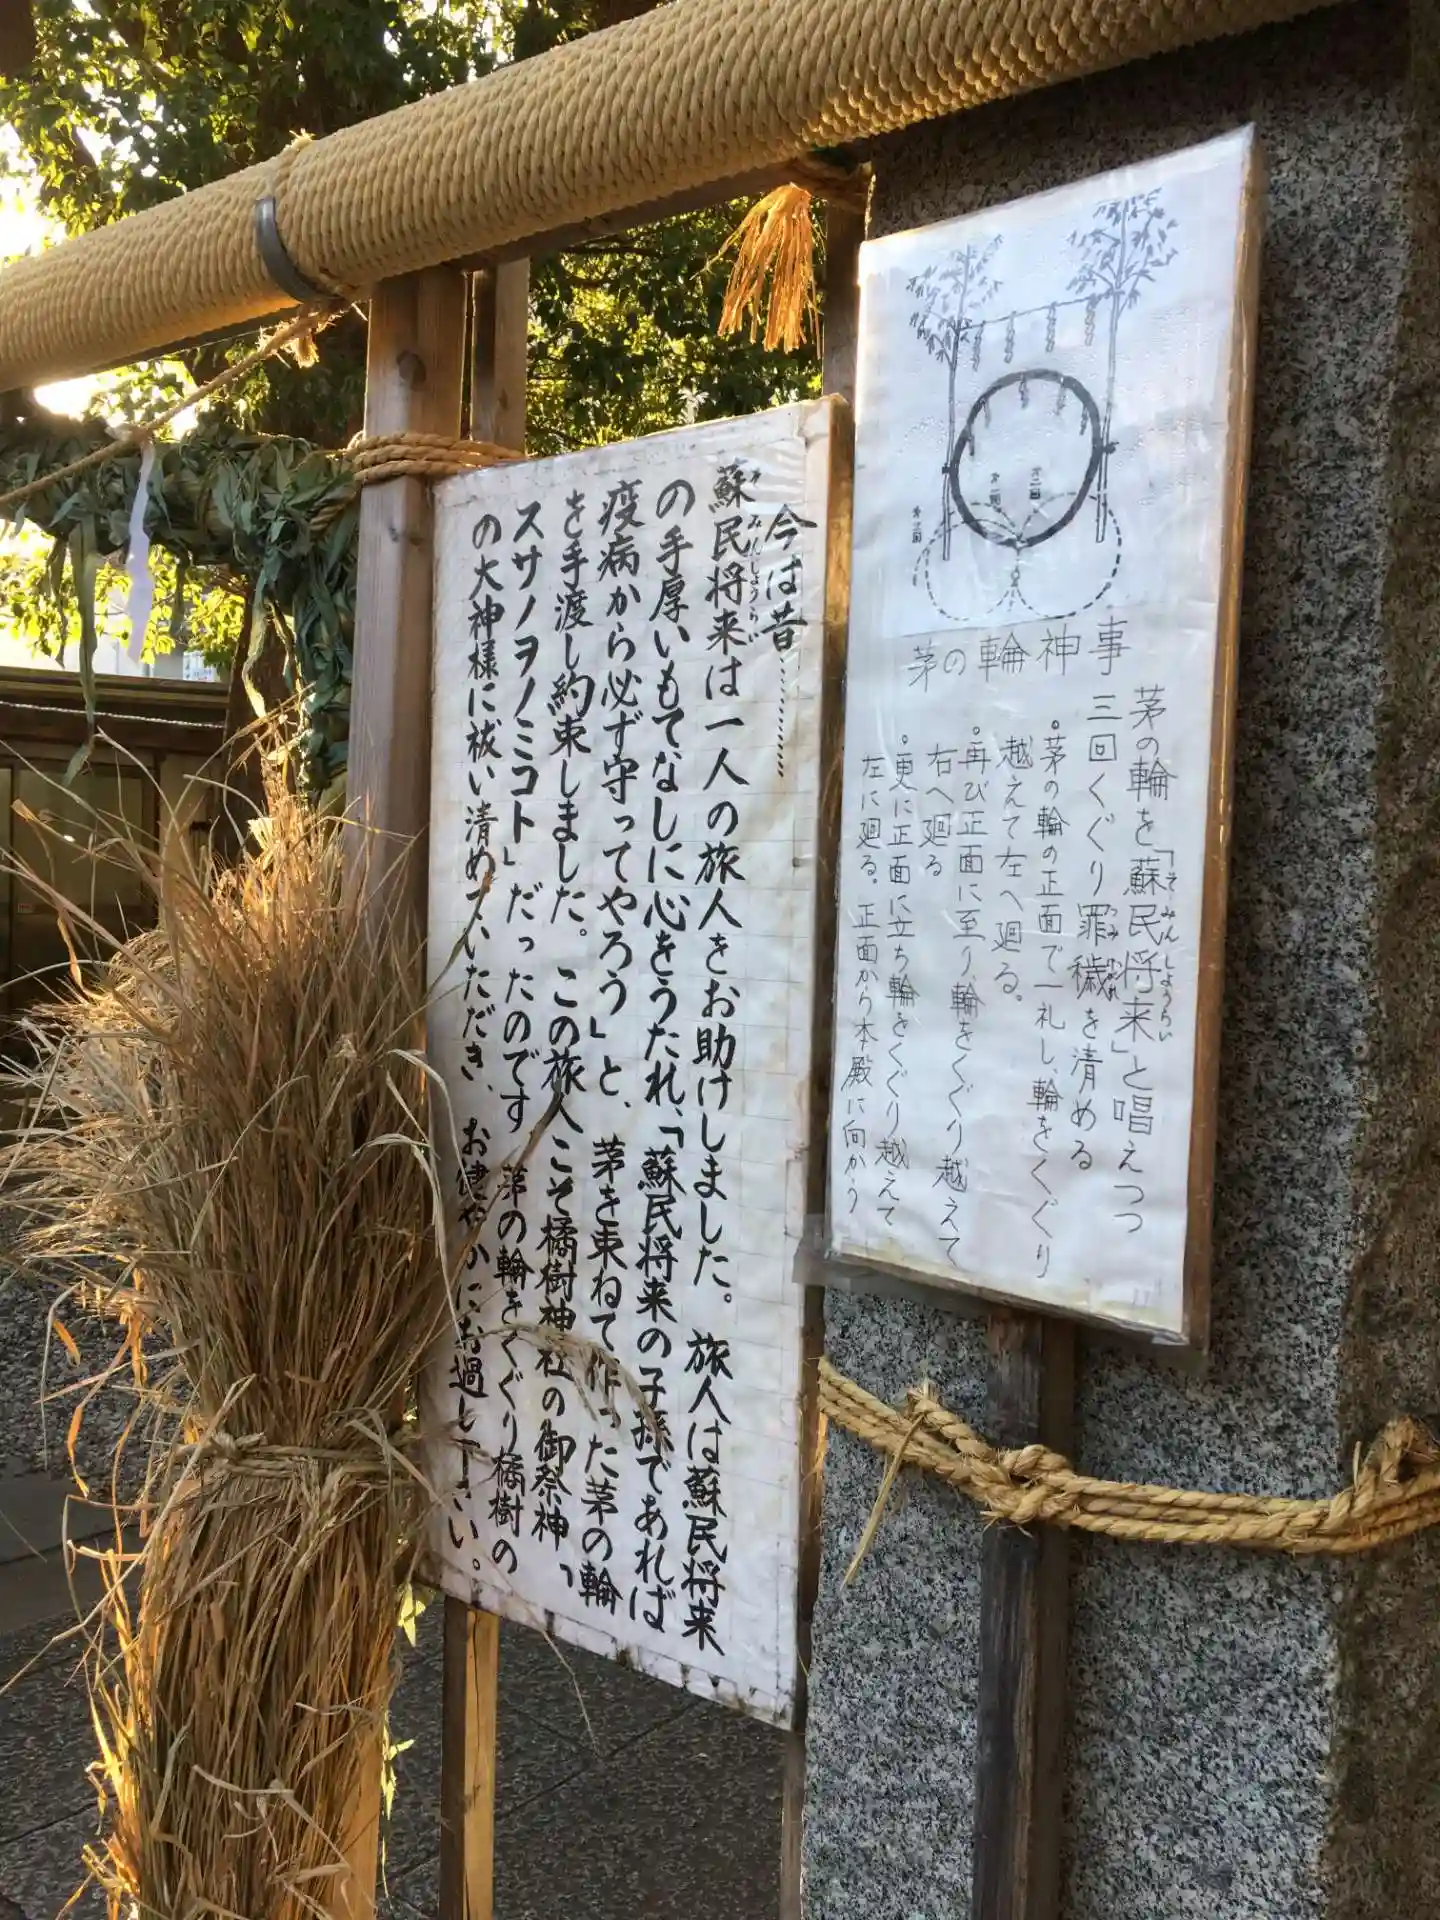 茅の輪神事
茅の輪を「蘇民将来」と唱えつつ
そみんしょうらい
三回くぐり罪穢を清める
つみけがれ
•茅の輪の正面で一礼し、輪をくぐり
越えて左へ廻る。
•再び正面に至り、輪をくぐり越えて
右へ廻る
•更に正面に立ち輪をくぐり越えて
左に廻る、正面から本殿に向かう
今は昔…………
蘇民将来は一人の旅人をお助けしました。 旅人は蘇民将来
みんしょうらい
の手厚いもてなしに心をうたれ、「蘇民将来の子孫であれば
疫病から必ず守ってやろう」と、 茅を束ねて作った茅の輪
を手渡し約束しました。 この旅人こそ橘樹神社の御祭神「
スサノヲノミコト」だったのです 茅の輪をくぐり橘樹の
の大神様に祓い清めていただき、 お健やかにお過し下さい。